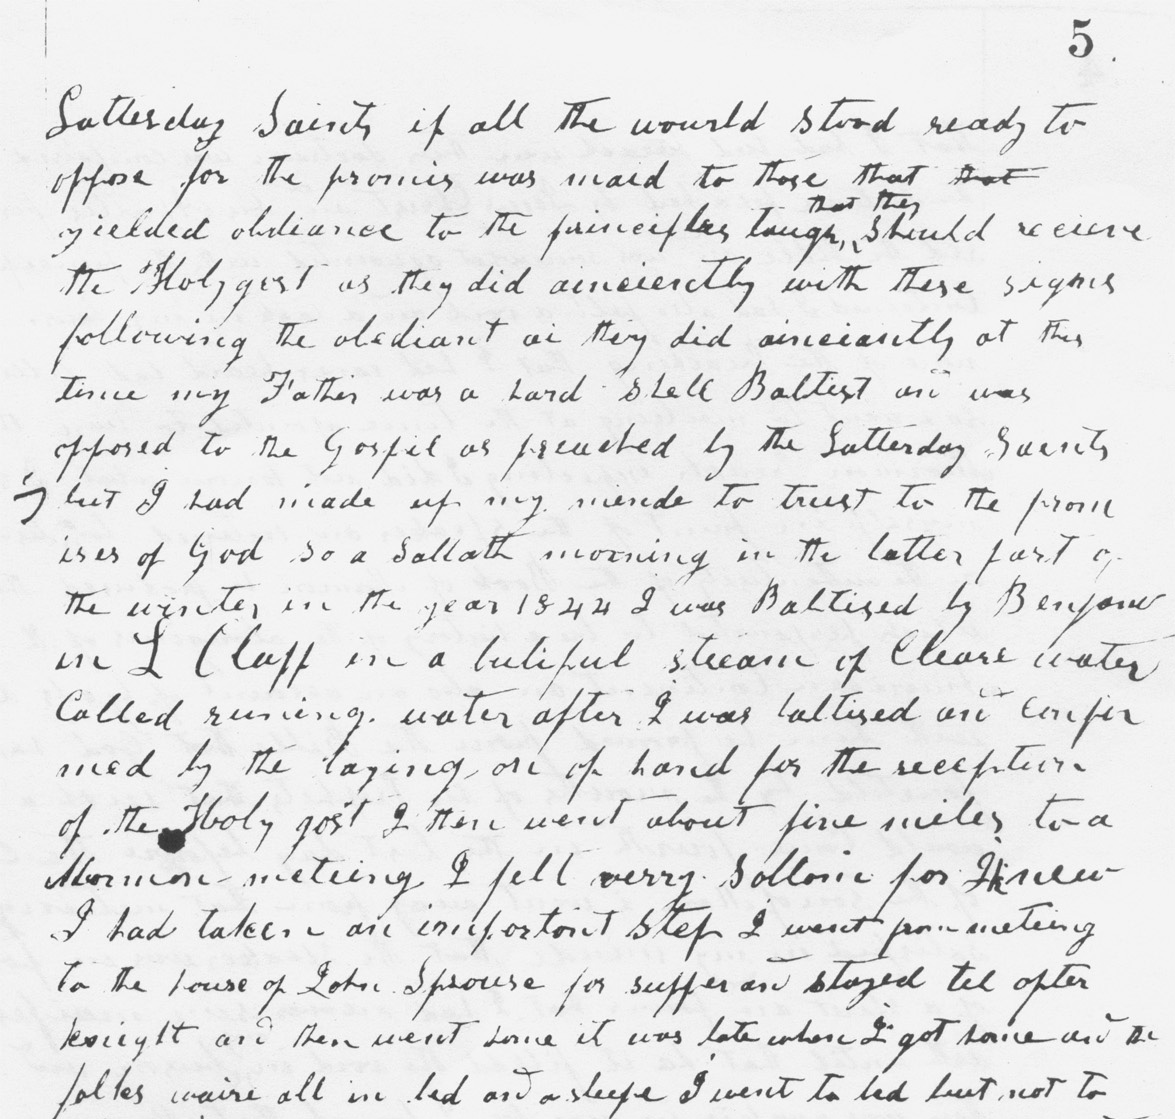 5
Latterday Saints if all the wourld stood ready to
oppose for the promis was maid to those that that
that they
yielded obdiance to the principles taugh, should recieve
the Holy gost as they did aineciently with these signs
following the obediant as they did ainciantly at this
time my Father was a hard shell Babtist and was
opposed to the Gospil as preached by the Latterday Saints
but I had made up my minde to trust to the prom
ises of God so a Sabbath morning in the latter part of
the winter in the year 1844 I was Babtised by Benjam
in L Clapp in a butiful stream of Cleare water
Called runing water after I was babtised and confir
med by the laying on of hand for the reception
of the Holy gost I then went about five miles to a
Mormon meteing I fell verry Sollom for I knew
I had taken an importont step I went from meteing
to the house of John Sprouse for supper and stayed tel after
knight and then went home it was late when I got home and the
folkes waire all in bed and asleepe I went to bed but not to